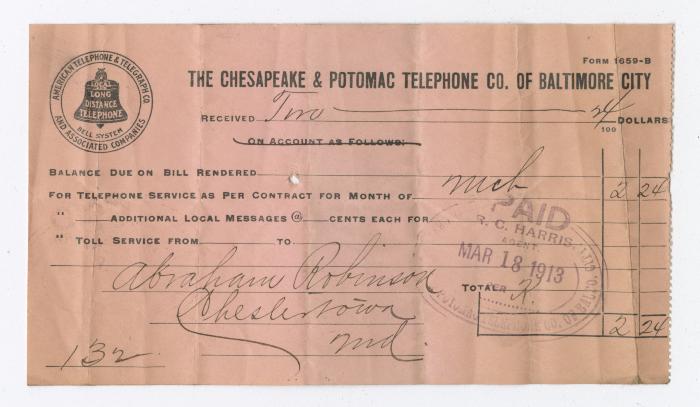 FORM 1659-B
AMERICAN TELEPHONE & TELEGRAPH CO.
AND ASSOCIATED COMPANIES
LOCAL AND
LONG
DISTANCE
TELEPHONE
BELL SYSTEM
THE CHESAPEAKE & POTOMAC TELEPHONE CO. OF BALTIMORE CITY
RECEIVED Two 24/100 DOLLARS
ON ACCOUNT AS FOLLOWS:
BALANCE DUE ON BILL RENDERED
FOR TELEPHONE SERVICE AS PER CONTRACT FOR MONTH OF Mch 2 24
" ADDITIONAL LOCAL MESSAGES @ CENTS EACH FOR
" TOLL SERVICE FROM TO
PAID
R. C. HARRIS,
AGENT.
MAR 18 1913
PER R.
Abraham Robinson
TOTAL
Chestertown
2 24
Md.
132